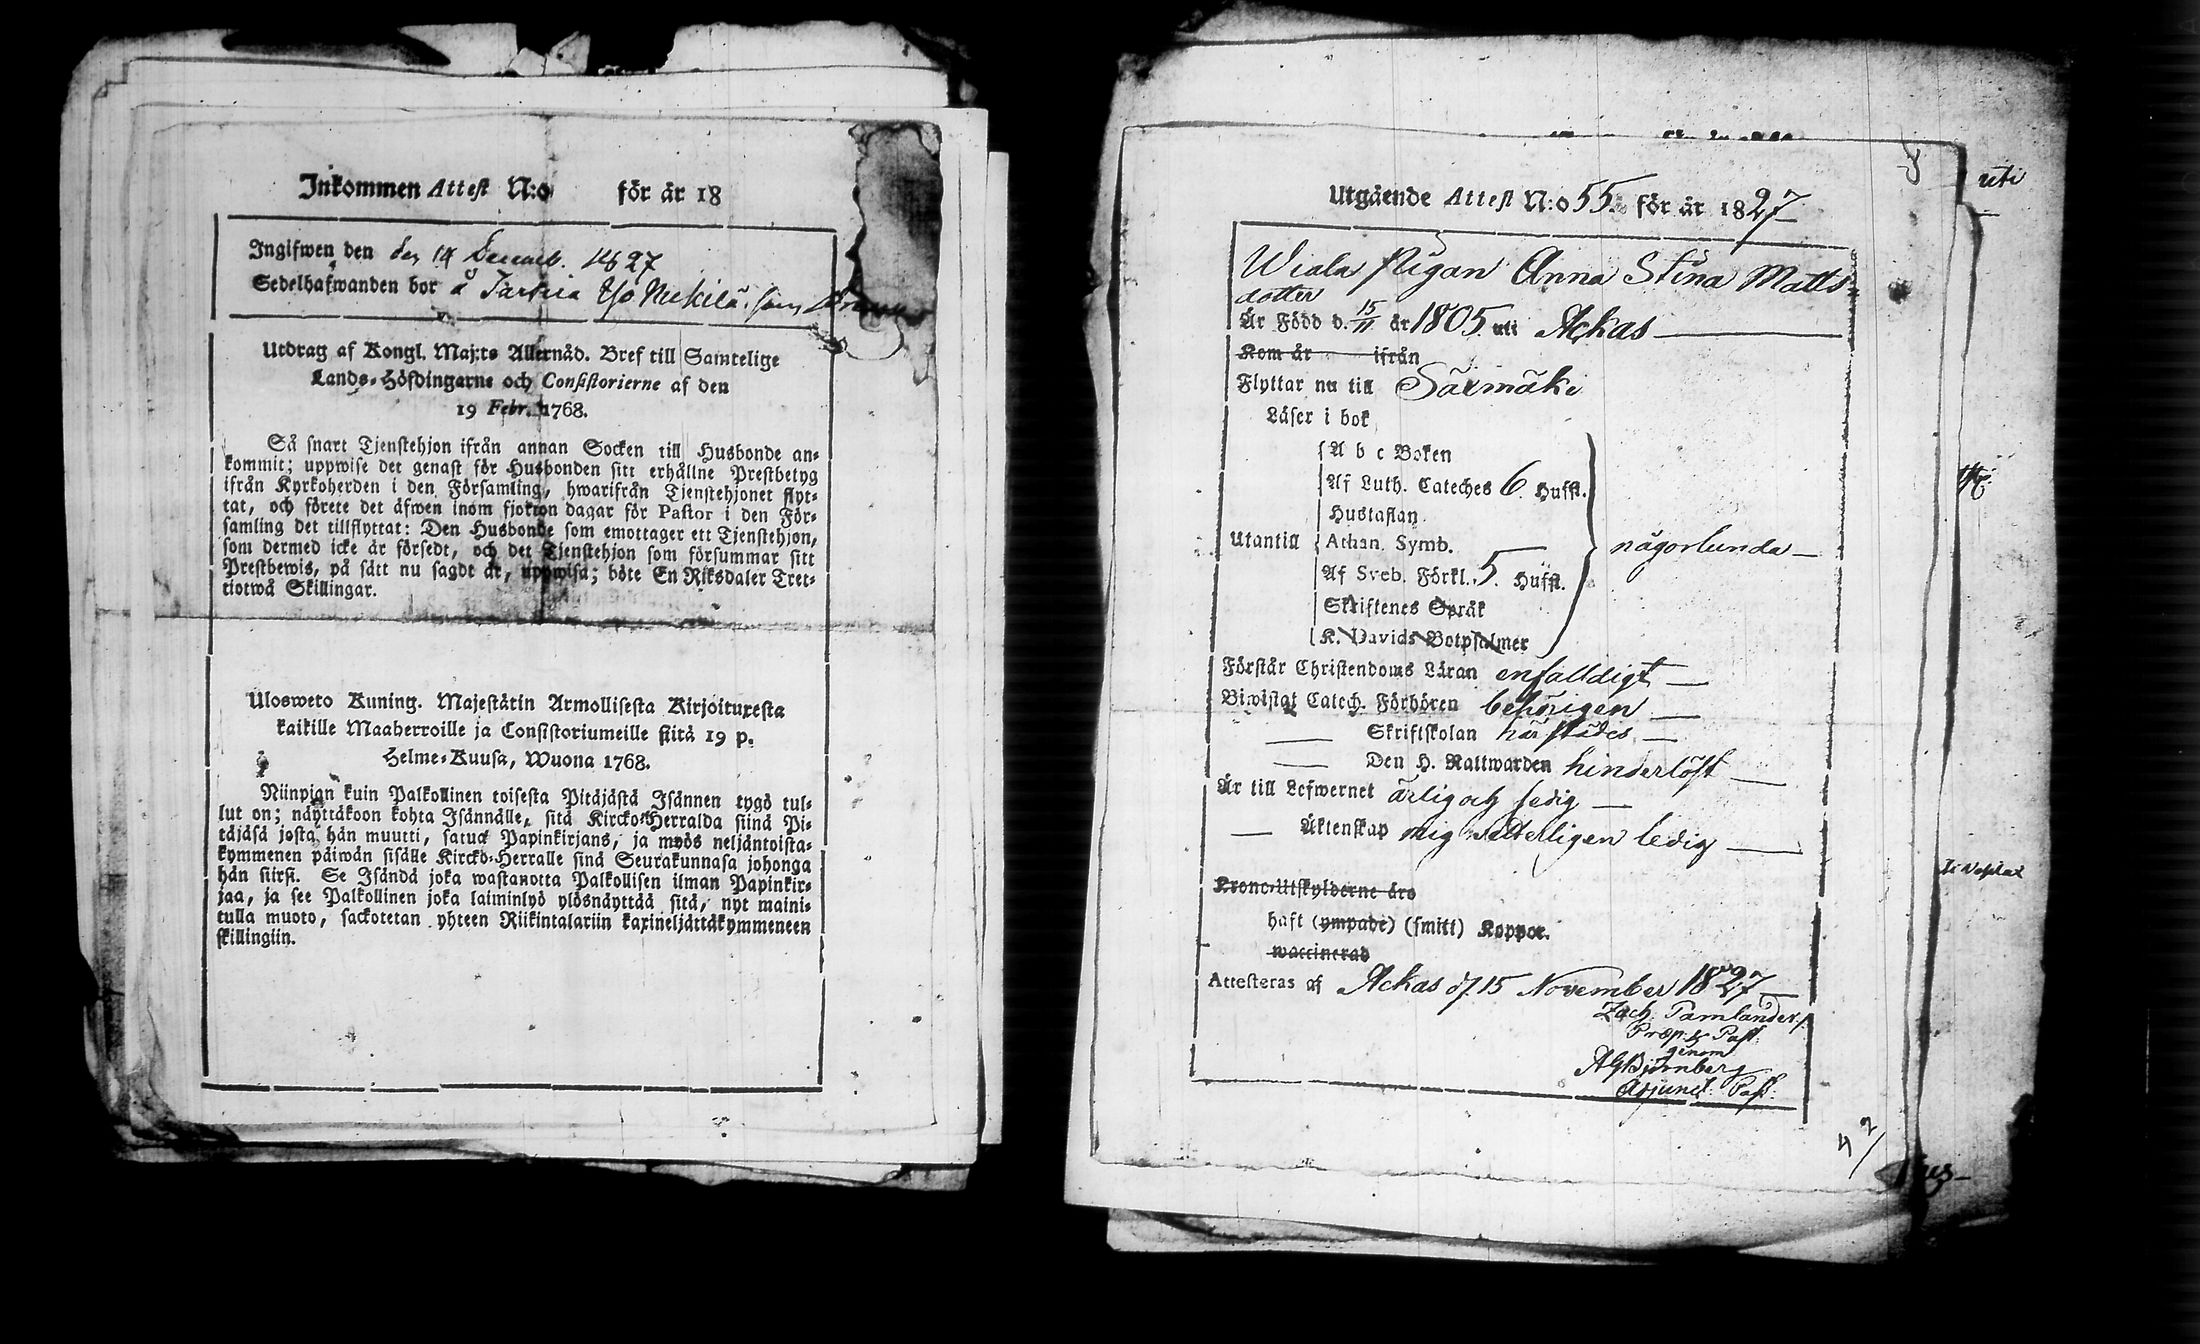 Inkommen Attest N:o för år 18
Ingifwen den den 14 Decemb. 1827
Sedelhafwanden bor å
Utdrag af Kongl. Maj:ts Allernåd. Bref till Samtelige
Lands-Höfdingarne och Consistorierne af den
19 Febr. 1768.
Så snart Tjenstehjon ifrån annan Socken till Husbonde an-
kommit; uppwise det genast för Husbonden sitt erhållne Prestbetyg
ifrån Kyrkoherden i den Församling, hwarifrån Tjenstehjonet flyt-
tat, och förete det äfwen inom fjorton dagar för Pastor i den För-
samling det tillflyttat: Den Husbonde som emottager ett Tjenstehjon,
som dermed icke är försedt, och det Tjenstehjon som försummar sitt
Prestbewis, på sätt nu sagdt är, uppwisa; böte En Riksdaler Tret-
tiotwå Skillingar.
Ulosweto Kuning. Majestätin Armollisesta Kirjoituxesta
kaikille Maaherroille ja Consistoriumeille siitä 19 p.
Helme-Kuusa, Wuona 1768.
Niinpian kuin Palkollinen toisesta Pitäjästä Isännen tygö tul-
lut on; näyttäkoon kohta Isännälle, sitä Kircko-Herralda siinä Pi-
täjäsä josta hän muutti, satud Papinkirjans, ja myös neljäntoista-
kymmenen päiwän sisälle Kircko-Herralle sinä Seurakunnasa johonga
hän siirsi. Se Isändä joka wastanotta Palkollisen ilman Papinkir-
jaa, ja see Palkollinen joka laiminlyö ylösnäyttää sitä, nyt maini-
tulla muoto, sackotetan yhteen Riikintalariin kaxineljättäkymmeneen
skillingiin.
Utgående Attest N:o 55. för år 1827
Wiala Pigan Anna Stina Matts
dotter
Är Född d. 15/11 år 1805 uti Ackas
Kom år ifrån
Flyttar nu till Säxmäki
Läser i bok
Utantill
A b c Boken
Af Luth. Cateches 6 Hufst.
Hustaflan
Athan. Symb.
Af Sveb. Förkl. 5. Hufst.
Skriftenes Språk
K. Davids Botpsalmer
någorlunda
Förstår Christendoms Läran enfaldigt
Biwistat Catech. Förhören behörigen
Skriftskolan härstädes
Den H. Nattwarden hinderlöst
Är till Lefwernet ärlig och sedig
Äktenskap mig witterligen ledig
Krono-Utskylderne äro
haft (ympade) (smitt) Koppor.
waccinerad
Attesteras af Ackas d. 15 November 1827
Zach.
Præp. & Past.
genom
AGBjörnberg
Adjunct. Past.
42
uti